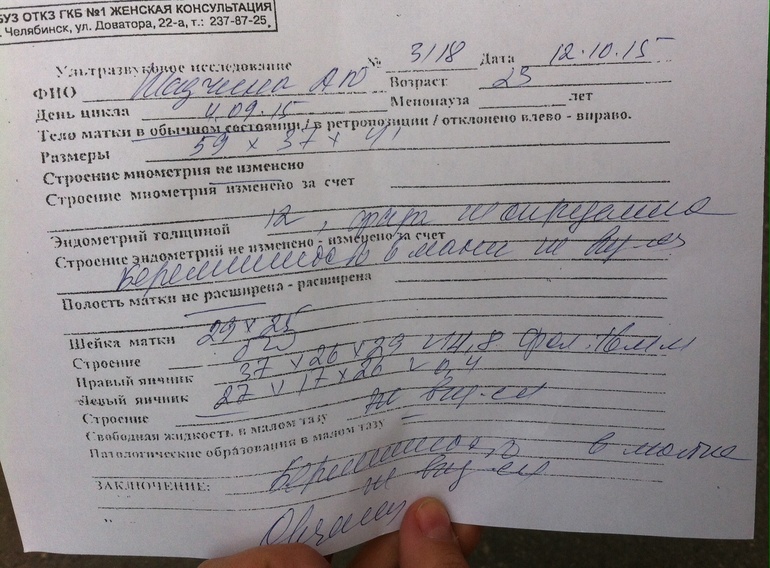 БУЗ ОТКЗ ГКБ №1 ЖЕНСКАЯ КОНСУЛЬТАЦИЯ
. Челябинск, ул. Доватора, 22-а, т.: 237-87-25.
Ультразвуковое исследование № 3118 Дата 12.10.15
ФИО Возраст 23
День цикла 4.09.15 Менопауза лет
Тело матки в обычном состоянии / в ретропозиции / отклонено влево - вправо.
Размеры 59 x 37 x 4
Строение миометрия не изменено
Строение миометрия изменено за счет
Эндометрий толщиной 12,
Строение эндометрий не изменено - изменено за счет
беременность в матке не
Полость матки не расширена - расширена
Шейка матки 29 x 25
Строение
Правый яичник 37 x 26 x 29 V 14,8 фол. 16 мм
Левый яичник 27 x 17 x 26 V 6,4
Строение
Свободная жидкость в малом тазу не
Патологические образования в малом тазу –
ЗАКЛЮЧЕНИЕ: беременность в матке
не